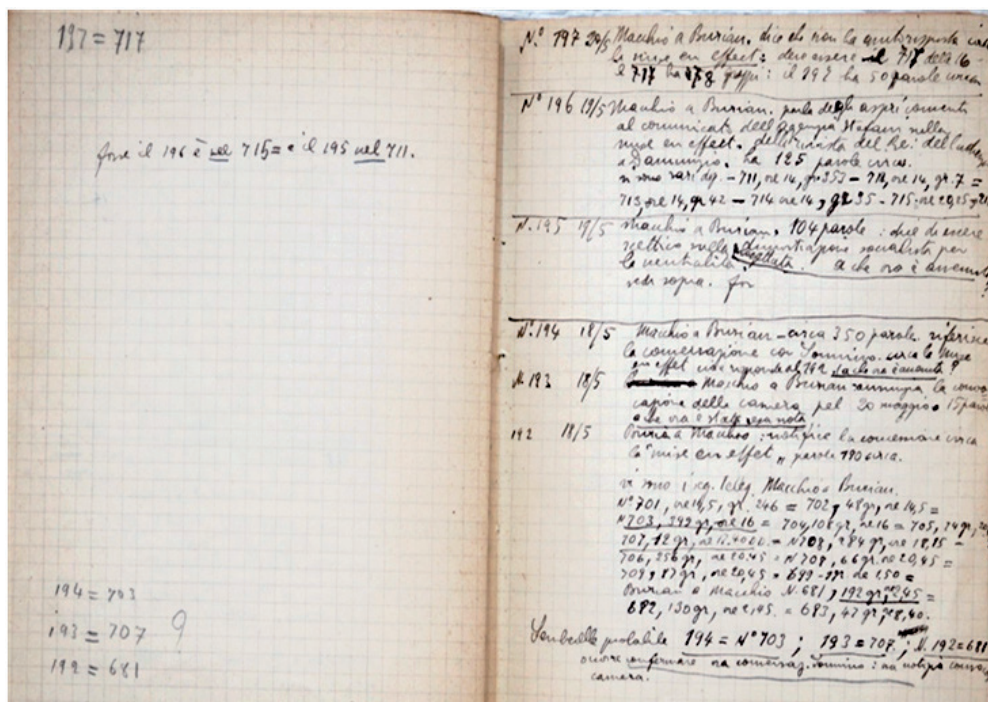 197 = 717
forse il 196 è nel 715 = e il 195 nel 711.
194 = 703
193 = 707 ?
192 = 681
N.º 197 20/5 Macchio a Burian. dice che non ha
la mise en effect: deve essere il 717 delle 16 -
il 717 ha gruppi: il 197 ha 50 parole circa
Nº 196 19/5 Macchio a Burian. parla degli aspri commenti
al comunicato dell'agenzia Stefani sulla
mise en effect. del Re: dell'udienza
a Dannunzio. ha 125 parole circa.
vi sono vari disp. - 711, ore 14, gr 353 - 712, ore 14, gr. 7 =
713, ore 14, gr 42 - 714 ore 14, gr 35 - 715: ore 20,25, 
N. 195 19/5 Macchio a Burian. 104 parole: dice di essere
scettico sulla socialista per
la neutralità. a che ora è arrivato
vedi sopra. for ?
Nº. 194 18/5 Macchio a Burian - circa 350 parole. riferisce
la conversazione con Sonnino. circa la mise
en effet a che ora è arrivato?
N. 193 18/5 Macchio a Burian annunzia la convo
cazione della camera pel 20 maggio. 15 parole
a che ora è stata nota
192 18/5 Burian a Macchio: notifica la concessione circa
la "mise en effet" parole 190 circa.
vi sono i sg. teleg. Macchio a Burian.
Nº 701, ore 14,5, gr. 246 = 702, 48 gr, ore 14,5 =
N 703, 392 gr, ore 16 = 704, 108 gr, ore 16 = 705, 24 gr,
707, 12 gr, ore = N 708, 284 gr, ore 18,15 -
706, 256 gr, ore 20.45 = N 708, 66 gr. ore 20,45 =
709, 87 gr, ore 20,45 = 699 - ore 1,50 =
Burian a Macchio N. 681, 192 gr, 2,45 =
682, 130 gr, ore 2,45. = 683, 47 gr, 8,40.
Sembrelle probabile 194 = Nº 703; 193 = 707; N. 192 = 681
occorre confermare ora conversaz. Sonnino: ora notizia convoc
camera.